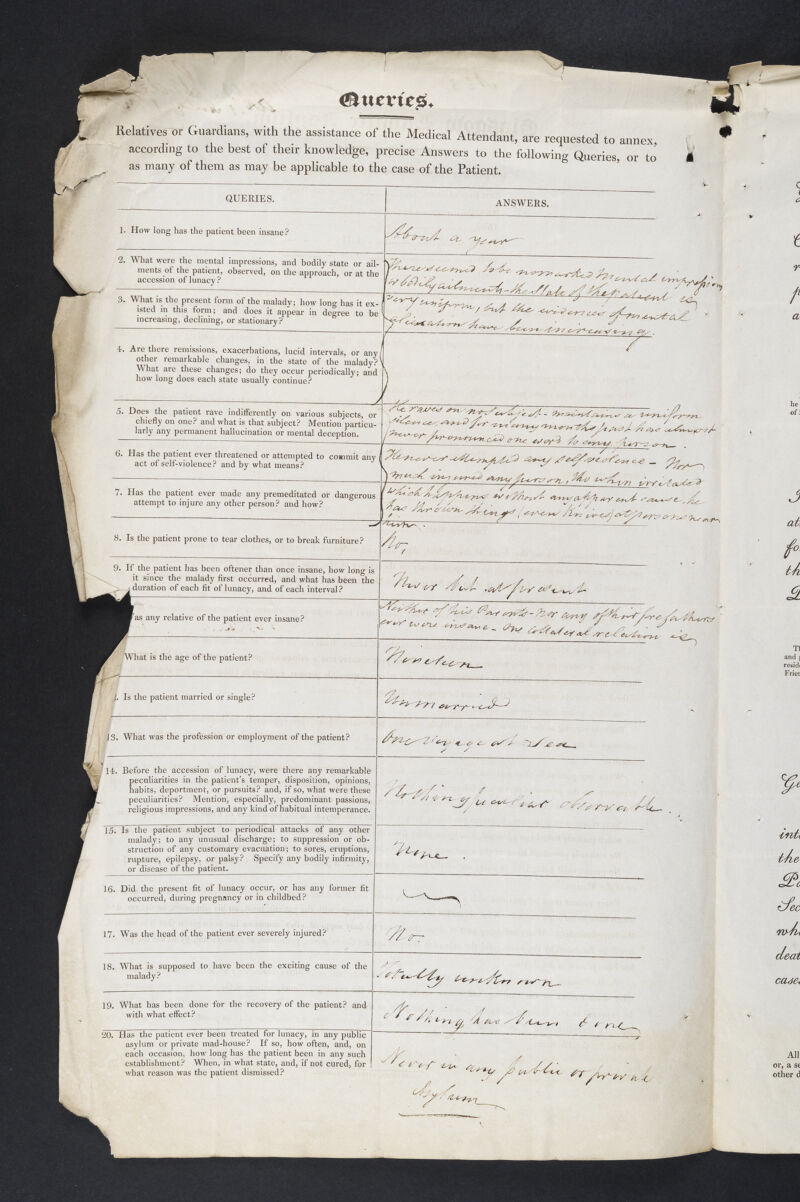 Queries.
Relatives or Guardians, with the assistance of the Medical Attendant, are requested to annex,
according to the best of their knowledge, precise Answers to the following Queries, or to
as many of them as may be applicable to the case of the Patient.
QUERIES.
ANSWERS.
1. How long has the patient been insane?
About a year
2. What were the mental impressions, and bodily state or ail-
ments of the patient, observed, on the approach, or at the
accession of lunacy?
There seemed to be no marked mental impression
or bodily ailments - the State of the patient is
3. What is the present form of the malady; how long has it ex-
isted in this form; and does it appear in degree to be
increasing, declining, or stationary?
very uniform, but the evidences of mental
alienation have been increasing.
4. Are there remissions, exacerbations, lucid intervals, or any
other remarkable changes, in the state of the malady?
What are these changes; do they occur periodically; and
how long does each state usually continue?
5. Does the patient rave indifferently on various subjects, or
chiefly on one? and what is that subject? Mention particu-
larly any permanent hallucination or mental deception.
He raves on no subject - maintains a uniform
silence, and for many months past has almost
never pronounced one word to any person.
6. Has the patient ever threatened or attempted to commit any
act of self-violence? and by what means?
He never attempted any self violence - Nor
much injured any person, tho when irritated
7. Has the patient ever made any premeditated or dangerous
attempt to injure any other person? and how?
which happens without any apparent cause, he
has thrown things (even Knives) at persons near
him.
8. Is the patient prone to tear clothes, or to break furniture?
No,
9. If the patient has been oftener than once insane, how long is
it since the malady first occurred, and what has been the
duration of each fit of lunacy, and of each interval?
Never but at present
as any relative of the patient ever insane?
Neither of his Parents - Nor any of their forefathers
ever were insane - One Collateral relation is
What is the age of the patient?
Nineteen
. Is the patient married or single?
Unmarried
13. What was the profession or employment of the patient?
One Voyage at Sea
14. Before the accession of lunacy, were there any remarkable
peculiarities in the patient's temper, disposition, opinions,
habits, deportment, or pursuits? and, if so, what were these
peculiarities? Mention, especially, predominant passions,
religious impressions, and any kind of habitual intemperance.
Nothing peculiar observable.
15. Is the patient subject to periodical attacks of any other
malady; to any unusual discharge; to suppression or ob-
struction of any customary evacuation; to sores, eruptions,
rupture, epilepsy, or palsy? Specify any bodily infirmity,
or disease of the patient.
None.
16. Did the present fit of lunacy occur, or has any former fit
occurred, during pregnancy or in childbed?
17. Was the head of the patient ever severely injured?
No.
18. What is supposed to have been the exciting cause of the
malady?
Totally unknown
19. What has been done for the recovery of the patient? and
with what effect?
Nothing has been done
20. Has the patient ever been treated for lunacy, in any public
asylum or private mad-house? If so, how often, and, on
each occasion, how long has the patient been in any such
establishment? When, in what state, and, if not cured, for
what reason was the patient dismissed?
Never in any public or private
Asylum